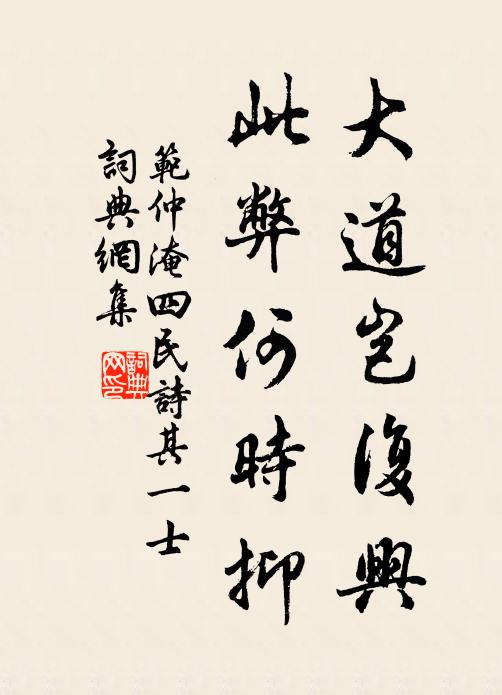 大道岂復興
此弊何時抑
範仲淹四民詩其一士
詞典網集
詞典网印